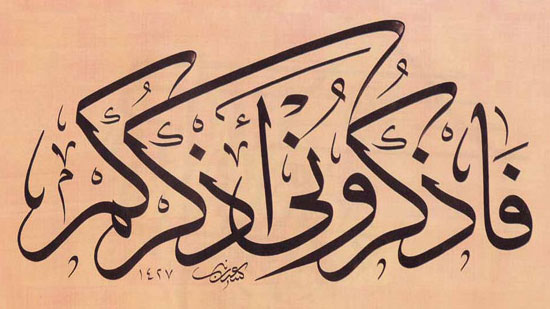 فاذكرونى أذكركم
١٤٢٧